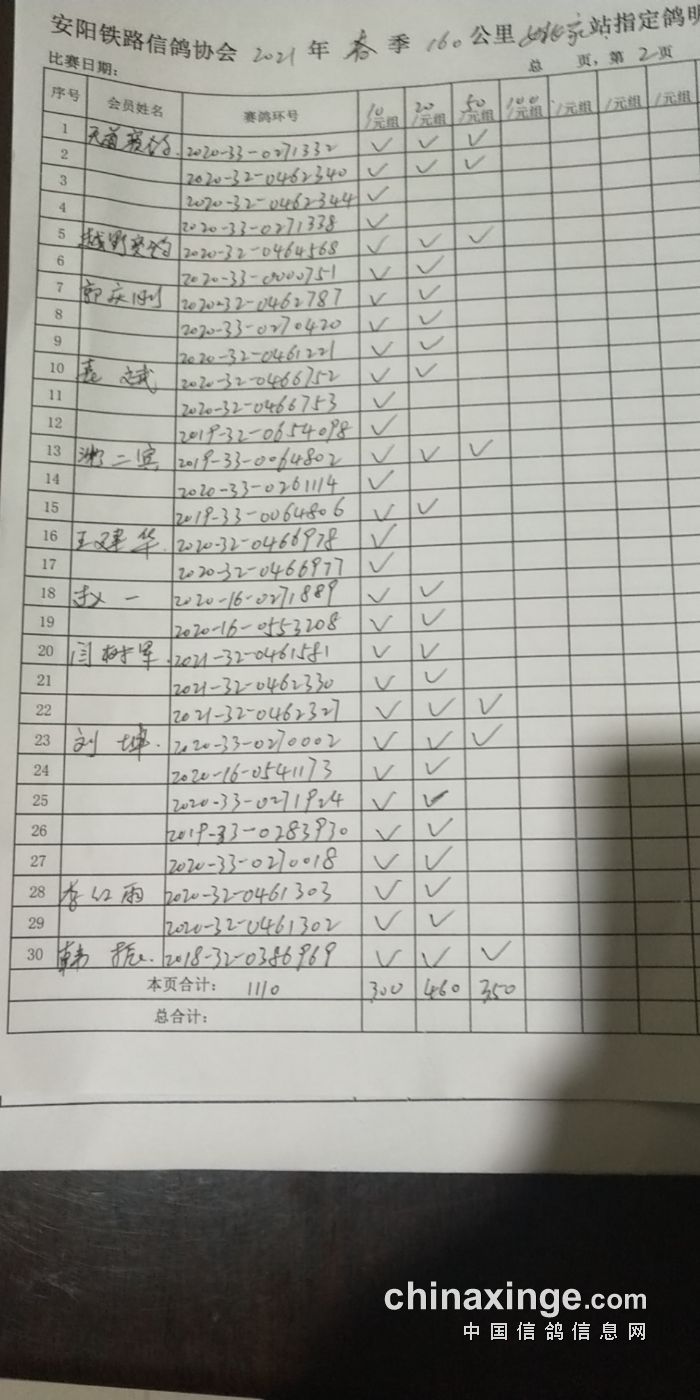 安阳铁路信鸽协会 2021 年 春 季 160 公里 站指定鸽明
比赛日期： 总 页，第 2 页
序号 会员姓名 赛鸽环号 10/元组 20/元组 50/元组 100/元组 /元组 /元组 /元组
1 2020-33-0271332 ✓ ✓ ✓
2 2020-32-0462340 ✓ ✓ ✓
3 2020-32-0462344 ✓
4 2020-33-0271338 ✓
5 越野赛鸽 2020-32-0464568 ✓ ✓ ✓
6 2020-33-0000751 ✓ ✓
7 郭庆刚 2020-32-0462787 ✓ ✓
8 2020-33-0270420 ✓ ✓
9 2020-32-0461221 ✓ ✓
10 文武 2020-32-0466752 ✓ ✓
11 2020-32-0466753 ✓
12 2019-32-0654098 ✓
13 二宾 2019-33-0064802 ✓ ✓ ✓
14 2020-33-0261114 ✓
15 2019-33-0064806 ✓ ✓
16 王建华 2020-32-0466978 ✓
17 2020-32-0466977 ✓
18 赵一 2020-16-0271889 ✓ ✓
19 2020-16-0553208 ✓ ✓
20 闫树军 2021-32-0461581 ✓ ✓
21 2021-32-0462330 ✓ ✓
22 2021-32-0462327 ✓ ✓ ✓
23 刘坤 2020-33-0270002 ✓ ✓ ✓
24 2020-16-0541173 ✓ ✓
25 2020-33-0271924 ✓ ✓
26 2019-33-0283930 ✓ ✓
27 2020-33-0270018 ✓ ✓
28 李红雨 2020-32-0461303 ✓ ✓
29 2020-32-0461302 ✓ ✓
30 韩振 2018-32-0386969 ✓ ✓ ✓
本页合计： 1110 300 460 350
总合计：
chinaxinge.com
中国信鸽信息网